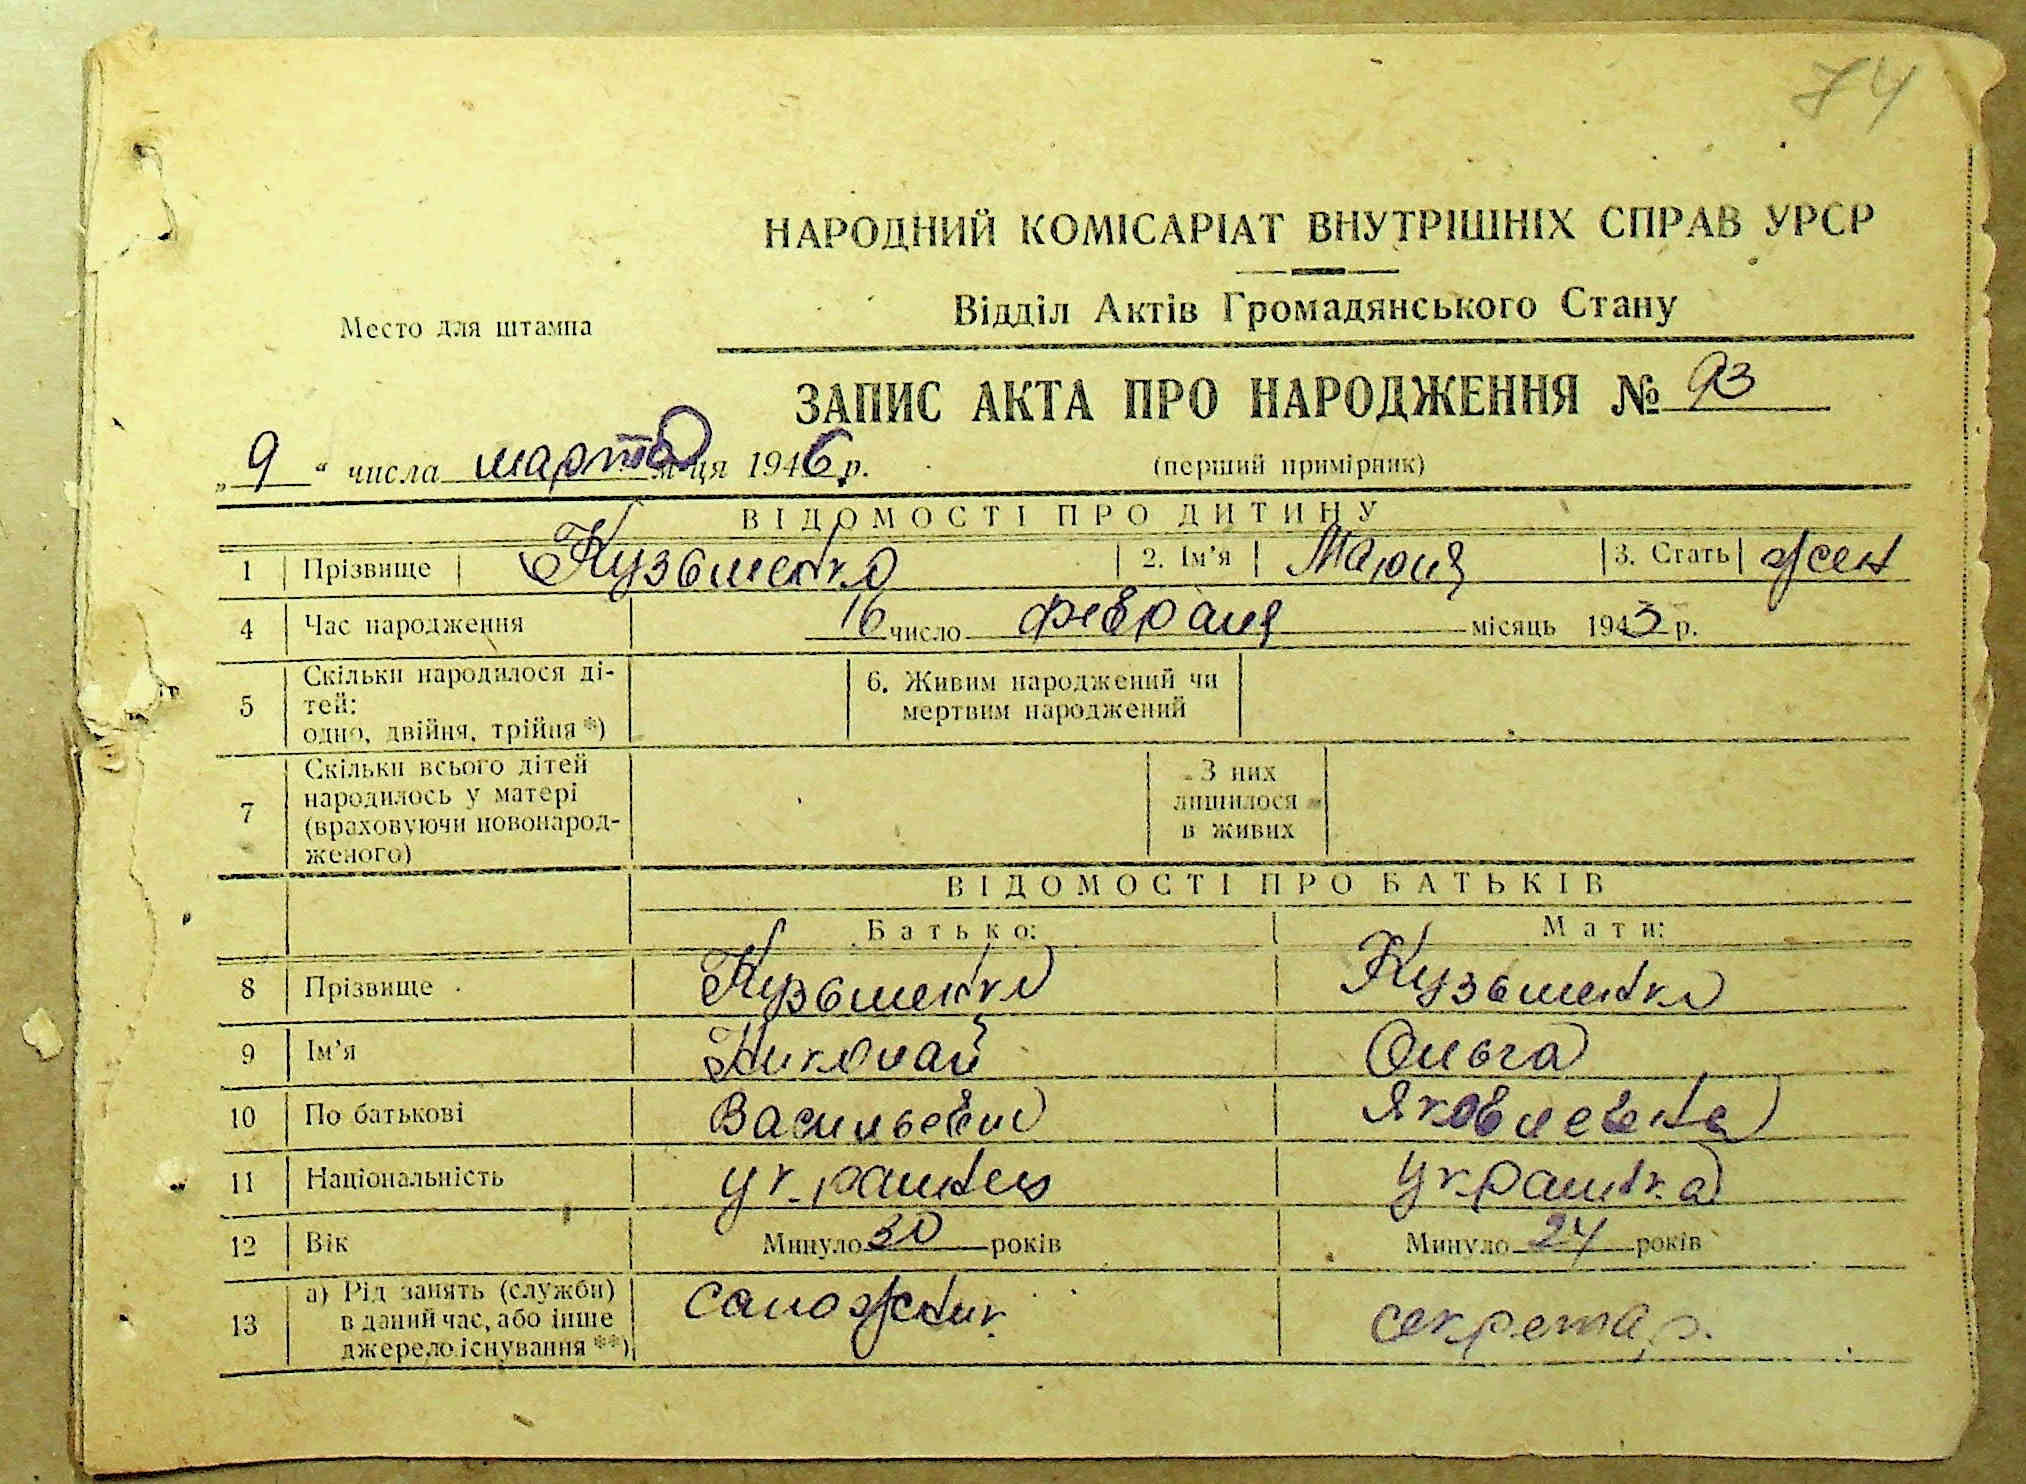 74
НАРОДНИЙ КОМІСАРІАТ ВНУТРІШНІХ СПРАВ УРСР
Відділ Актів Громадянського Стану
Место для штампа
ЗАПИС АКТА ПРО НАРОДЖЕННЯ № 93
„9“ числа марта м-ця 1946 р. (перший примірник)
ВІДОМОСТІ ПРО ДИТИНУ
1 Прізвище Кузьменко 2. Ім'я Мария 3. Стать жен
4 Час народження 16 число февраля місяць 1943 р.
5 Скільки народилося ді-
тей:
одно, двійня, трійня *)
6. Живим народжений чи
мертвим народжений
7 Скільки всього дітей
народилось у матері
(враховуючи новонарод-
женого)
З них
лишилося
в живих
ВІДОМОСТІ ПРО БАТЬКІВ
Батько: Мати:
8 Прізвище Кузьменко Кузьменко
9 Ім'я Николай Ольга
10 По батькові Васильевич Яковлевна
11 Національність украинец украинка
12 Вік Минуло 30 років Минуло 24 років
13 а) Рід занять (служби)
в даний час, або інше
джерело існування **)
сапожник секретар.